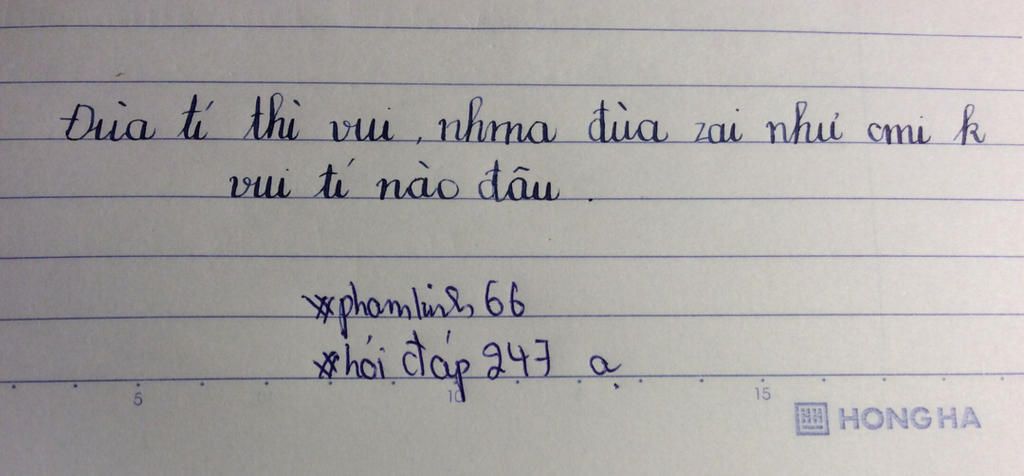 Đùa tí thì vui, nhma đùa zai như cmi k
vui tí nào đâu.
*phamlinh 66
*hỏi đáp 247 ạ
5 10 15
HONG HA